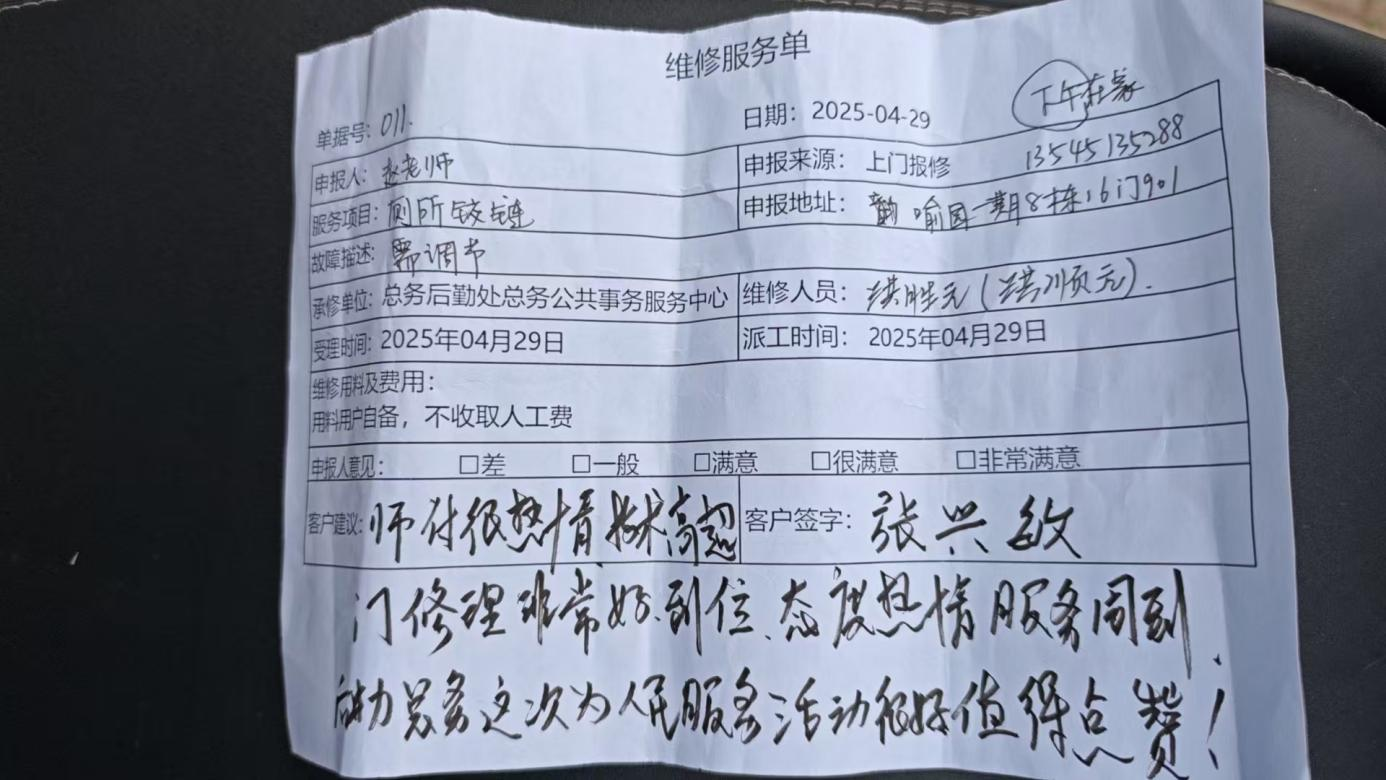 维修服务单
下午在家
单据号：011.
日期：2025-04-29
申报人：赵老师
申报来源：上门报修 13545135288
服务项目：厕所铰链
申报地址：韵喻园一期8栋16门901
故障描述：需调节
承修单位：总务后勤处总务公共事务服务中心
维修人员：洪胜元（洪顺元）.
受理时间：2025年04月29日
派工时间：2025年04月29日
维修用料及费用：
用料用户自备，不收取人工费
申报人意见： □差 □一般 □满意 □很满意 □非常满意
客户建议：师付很热情技术高超
客户签字：张兴敏
门修理非常好.到位、态度热情服务周到.
总务这次为人民服务活动很好值得点赞！